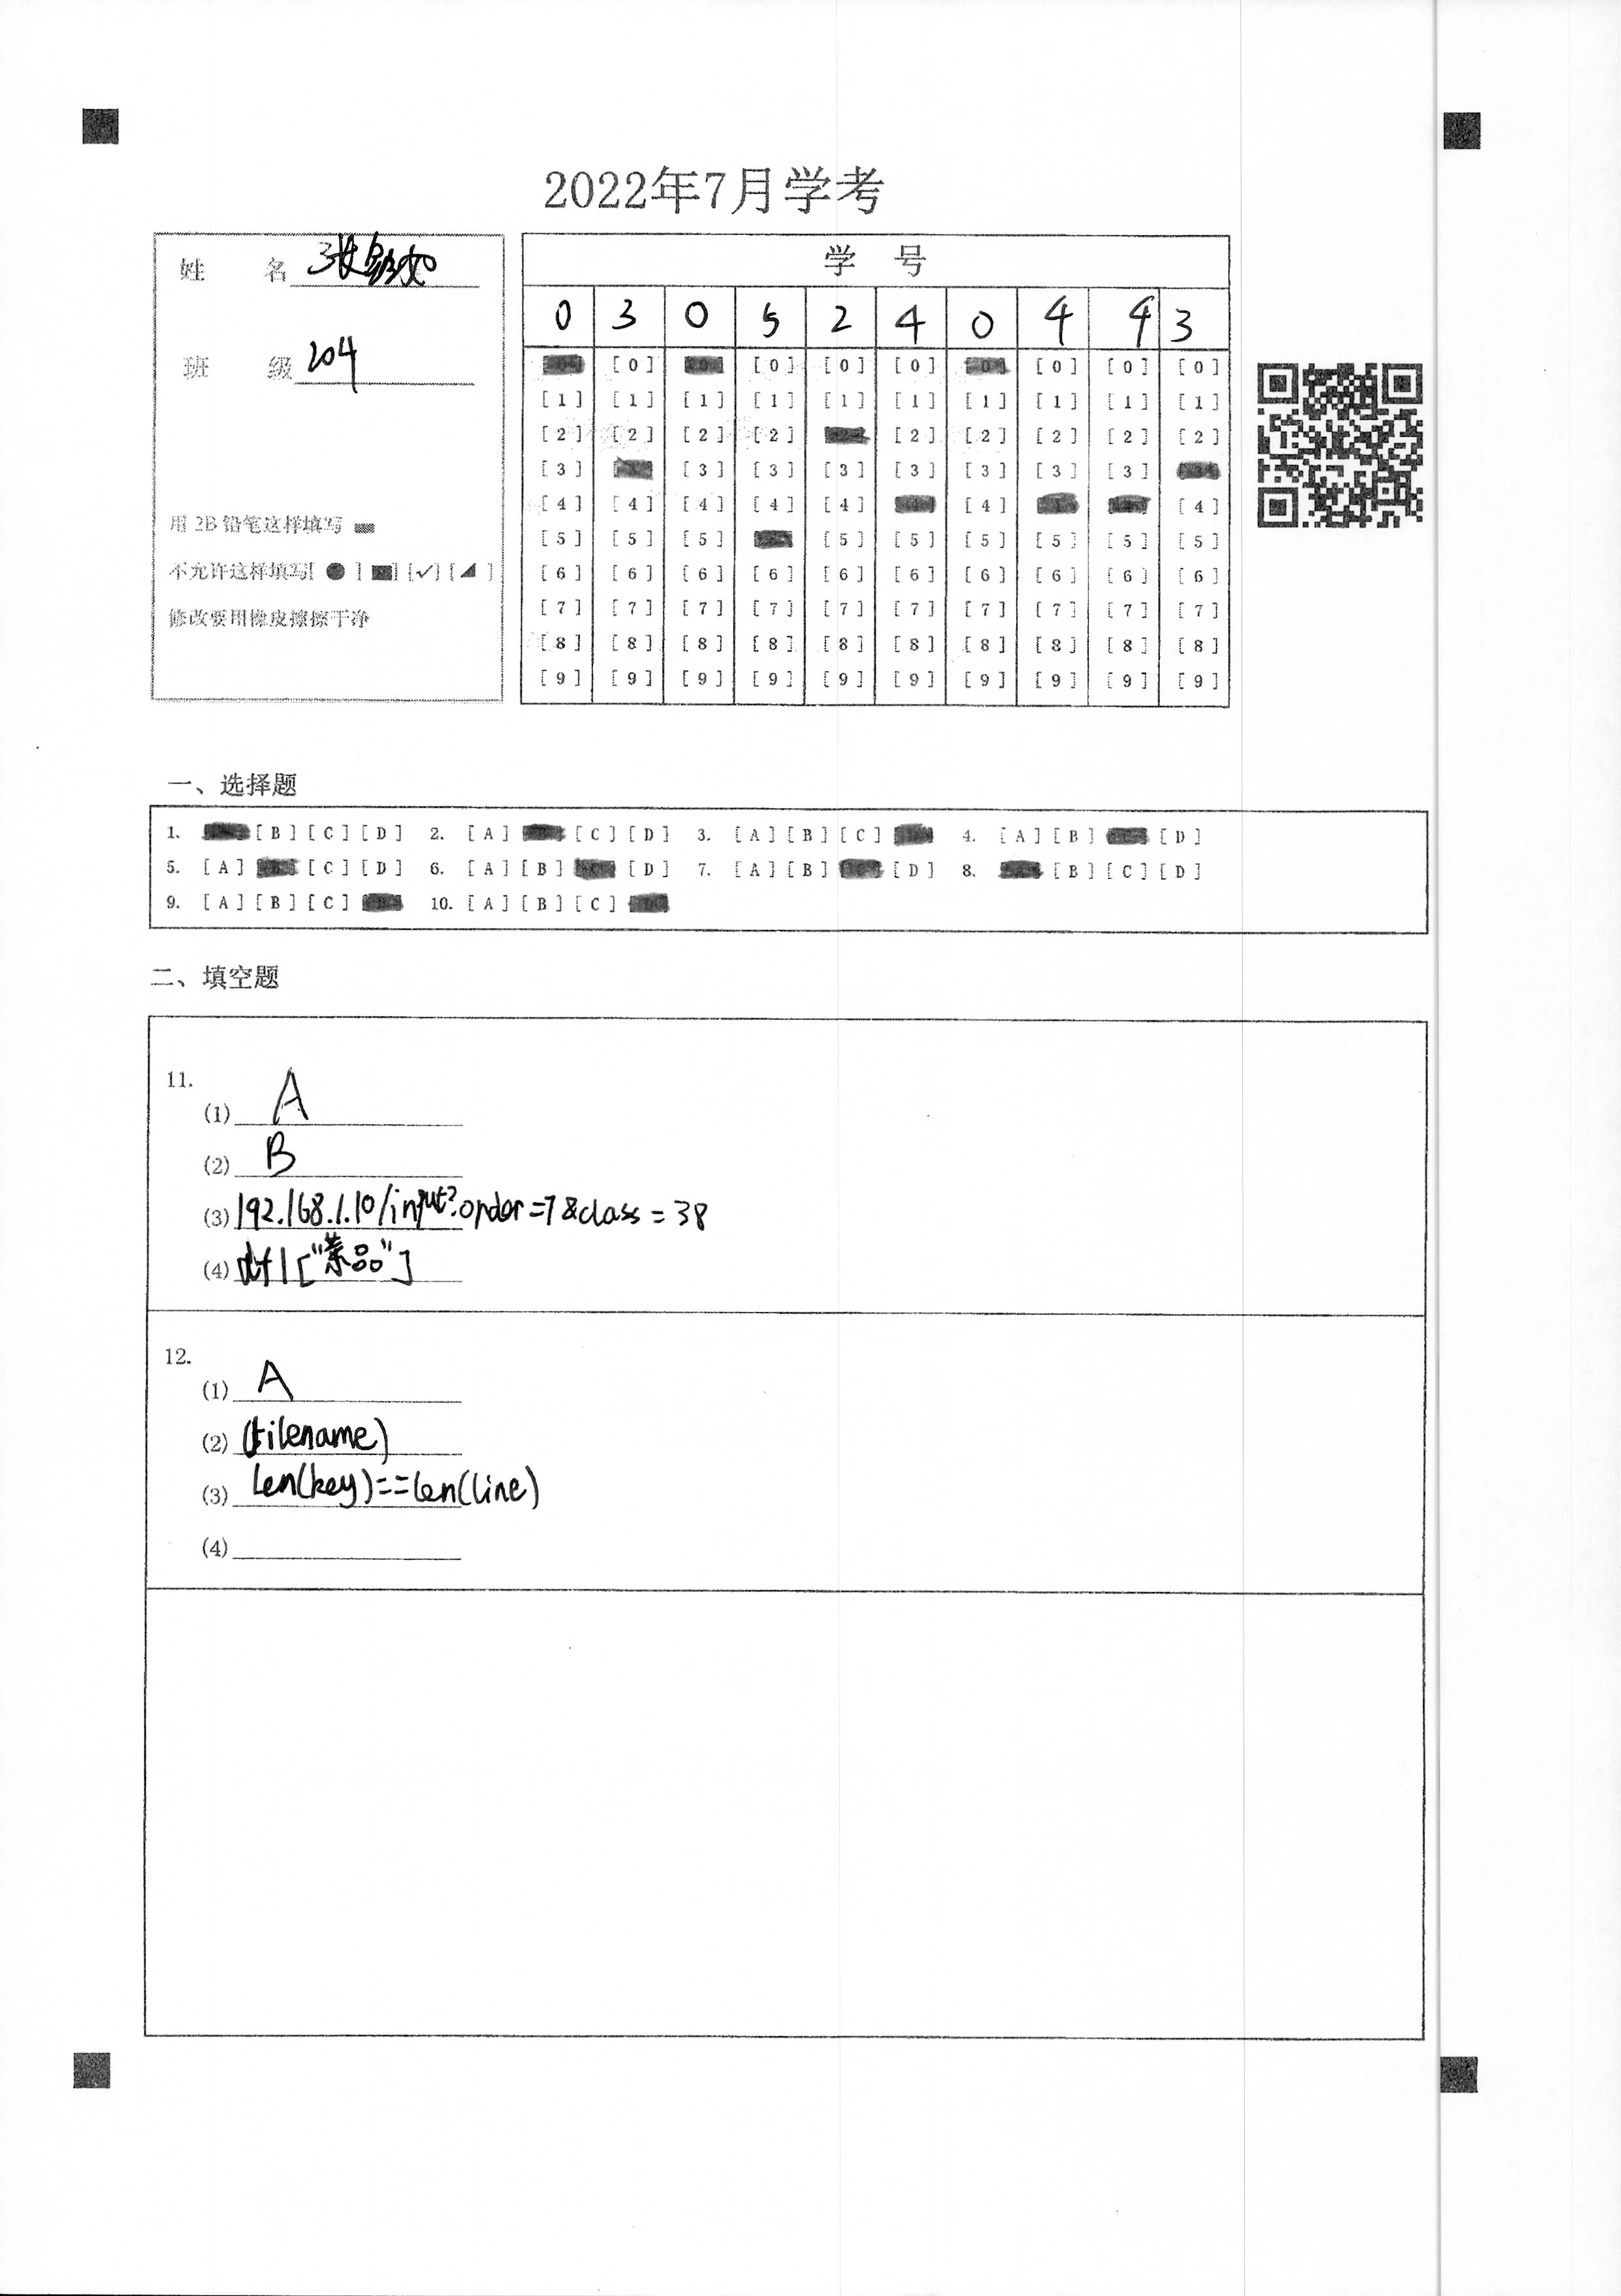 2022年7月学考
姓 名 张
班 级 204
用 2B 铅笔这样填写
不允许这样填写[ ● ] [■] [✓] [◢ ]
修改要用橡皮擦擦干净
学 号
0 3 0 5 2 4 0 4 4 3
[0] [0] [0] [0] [0] [0] [0]
[1] [1] [1] [1] [1] [1] [1] [1] [1] [1]
[2] [2] [2] [2] [2] [2] [2] [2] [2]
[3] [3] [3] [3] [3] [3] [3] [3]
[4] [4] [4] [4] [4] [4] [4]
[5] [5] [5] [5] [5] [5] [5] [5] [5]
[6] [6] [6] [6] [6] [6] [6] [6] [6] [6]
[7] [7] [7] [7] [7] [7] [7] [7] [7] [7]
[8] [8] [8] [8] [8] [8] [8] [8] [8] [8]
[9] [9] [9] [9] [9] [9] [9] [9] [9] [9]
一、选择题
1. [B] [C] [D] 2. [A] [C] [D] 3. [A] [B] [C] 4. [A] [B] [D]
5. [A] [C] [D] 6. [A] [B] [D] 7. [A] [B] [D] 8. [B] [C] [D]
9. [A] [B] [C] 10. [A] [B] [C]
二、填空题
11.
(1) A
(2) B
(3) 192.168.1.10/input?order=7&class=38
(4) df1["菜品"]
12.
(1) A
(2) (filename)
(3) len(key)==len(line)
(4)